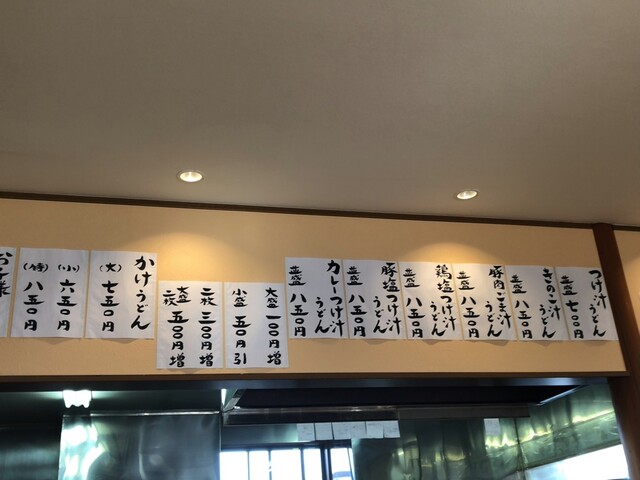 つけ汁うどん
並盛 七〇〇円
きのこ汁うどん
並盛 八五〇円
豚肉ごま汁うどん
並盛 八五〇円
鶏塩つけ汁うどん
並盛 八五〇円
豚塩つけ汁うどん
並盛 八五〇円
カレーつけ汁うどん
並盛 八五〇円
大盛 一〇〇円増
小盛 五〇円引
二枚 三〇〇円増
大盛二枚 五〇〇円増
かけうどん
(大) 七五〇円
(小) 六五〇円
(特) 八五〇円
お子様